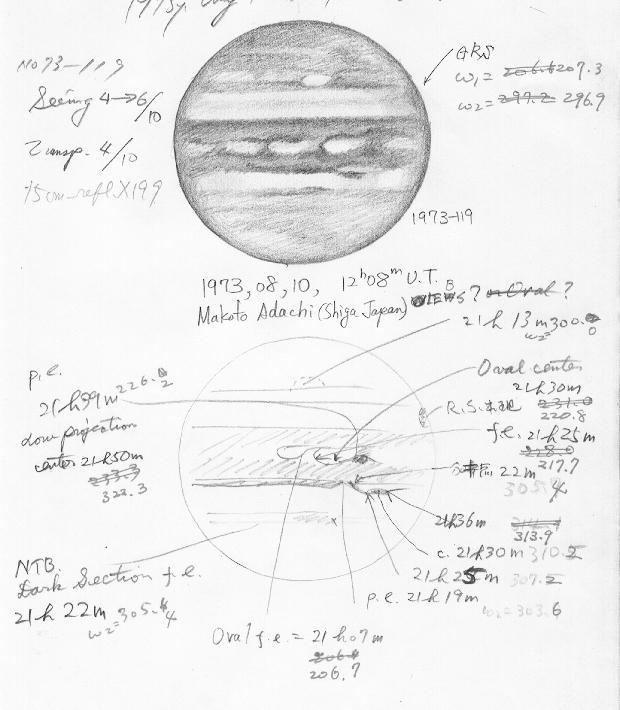 No 73-119
Seeing 4→6/10
Transp. 4/10
15cm refl. X199
ω₁= 206.6 207.3
ω₂= 297.2 296.9
1973-119
1973, 08, 10, 12ʰ08ᵐ U.T.
Makoto Adachi (Shiga Japan)
or Oval?
21h 13m 300.0
ω₂
p.e.
226.2
Oval center
21h30m
231.0
220.8
R.S.本
f.e. 21h25m
217.7
projection
center 21h50m
323.3
22m
305.4
21h36m
313.9
c. 21h30m 310.2
21h25m 307.2
p.e. 21h19m
ω₂=303.6
NTB.
Dark Section f.e.
21h 22m
ω₂=305.4
Oval f.e. = 21h07m
206.7